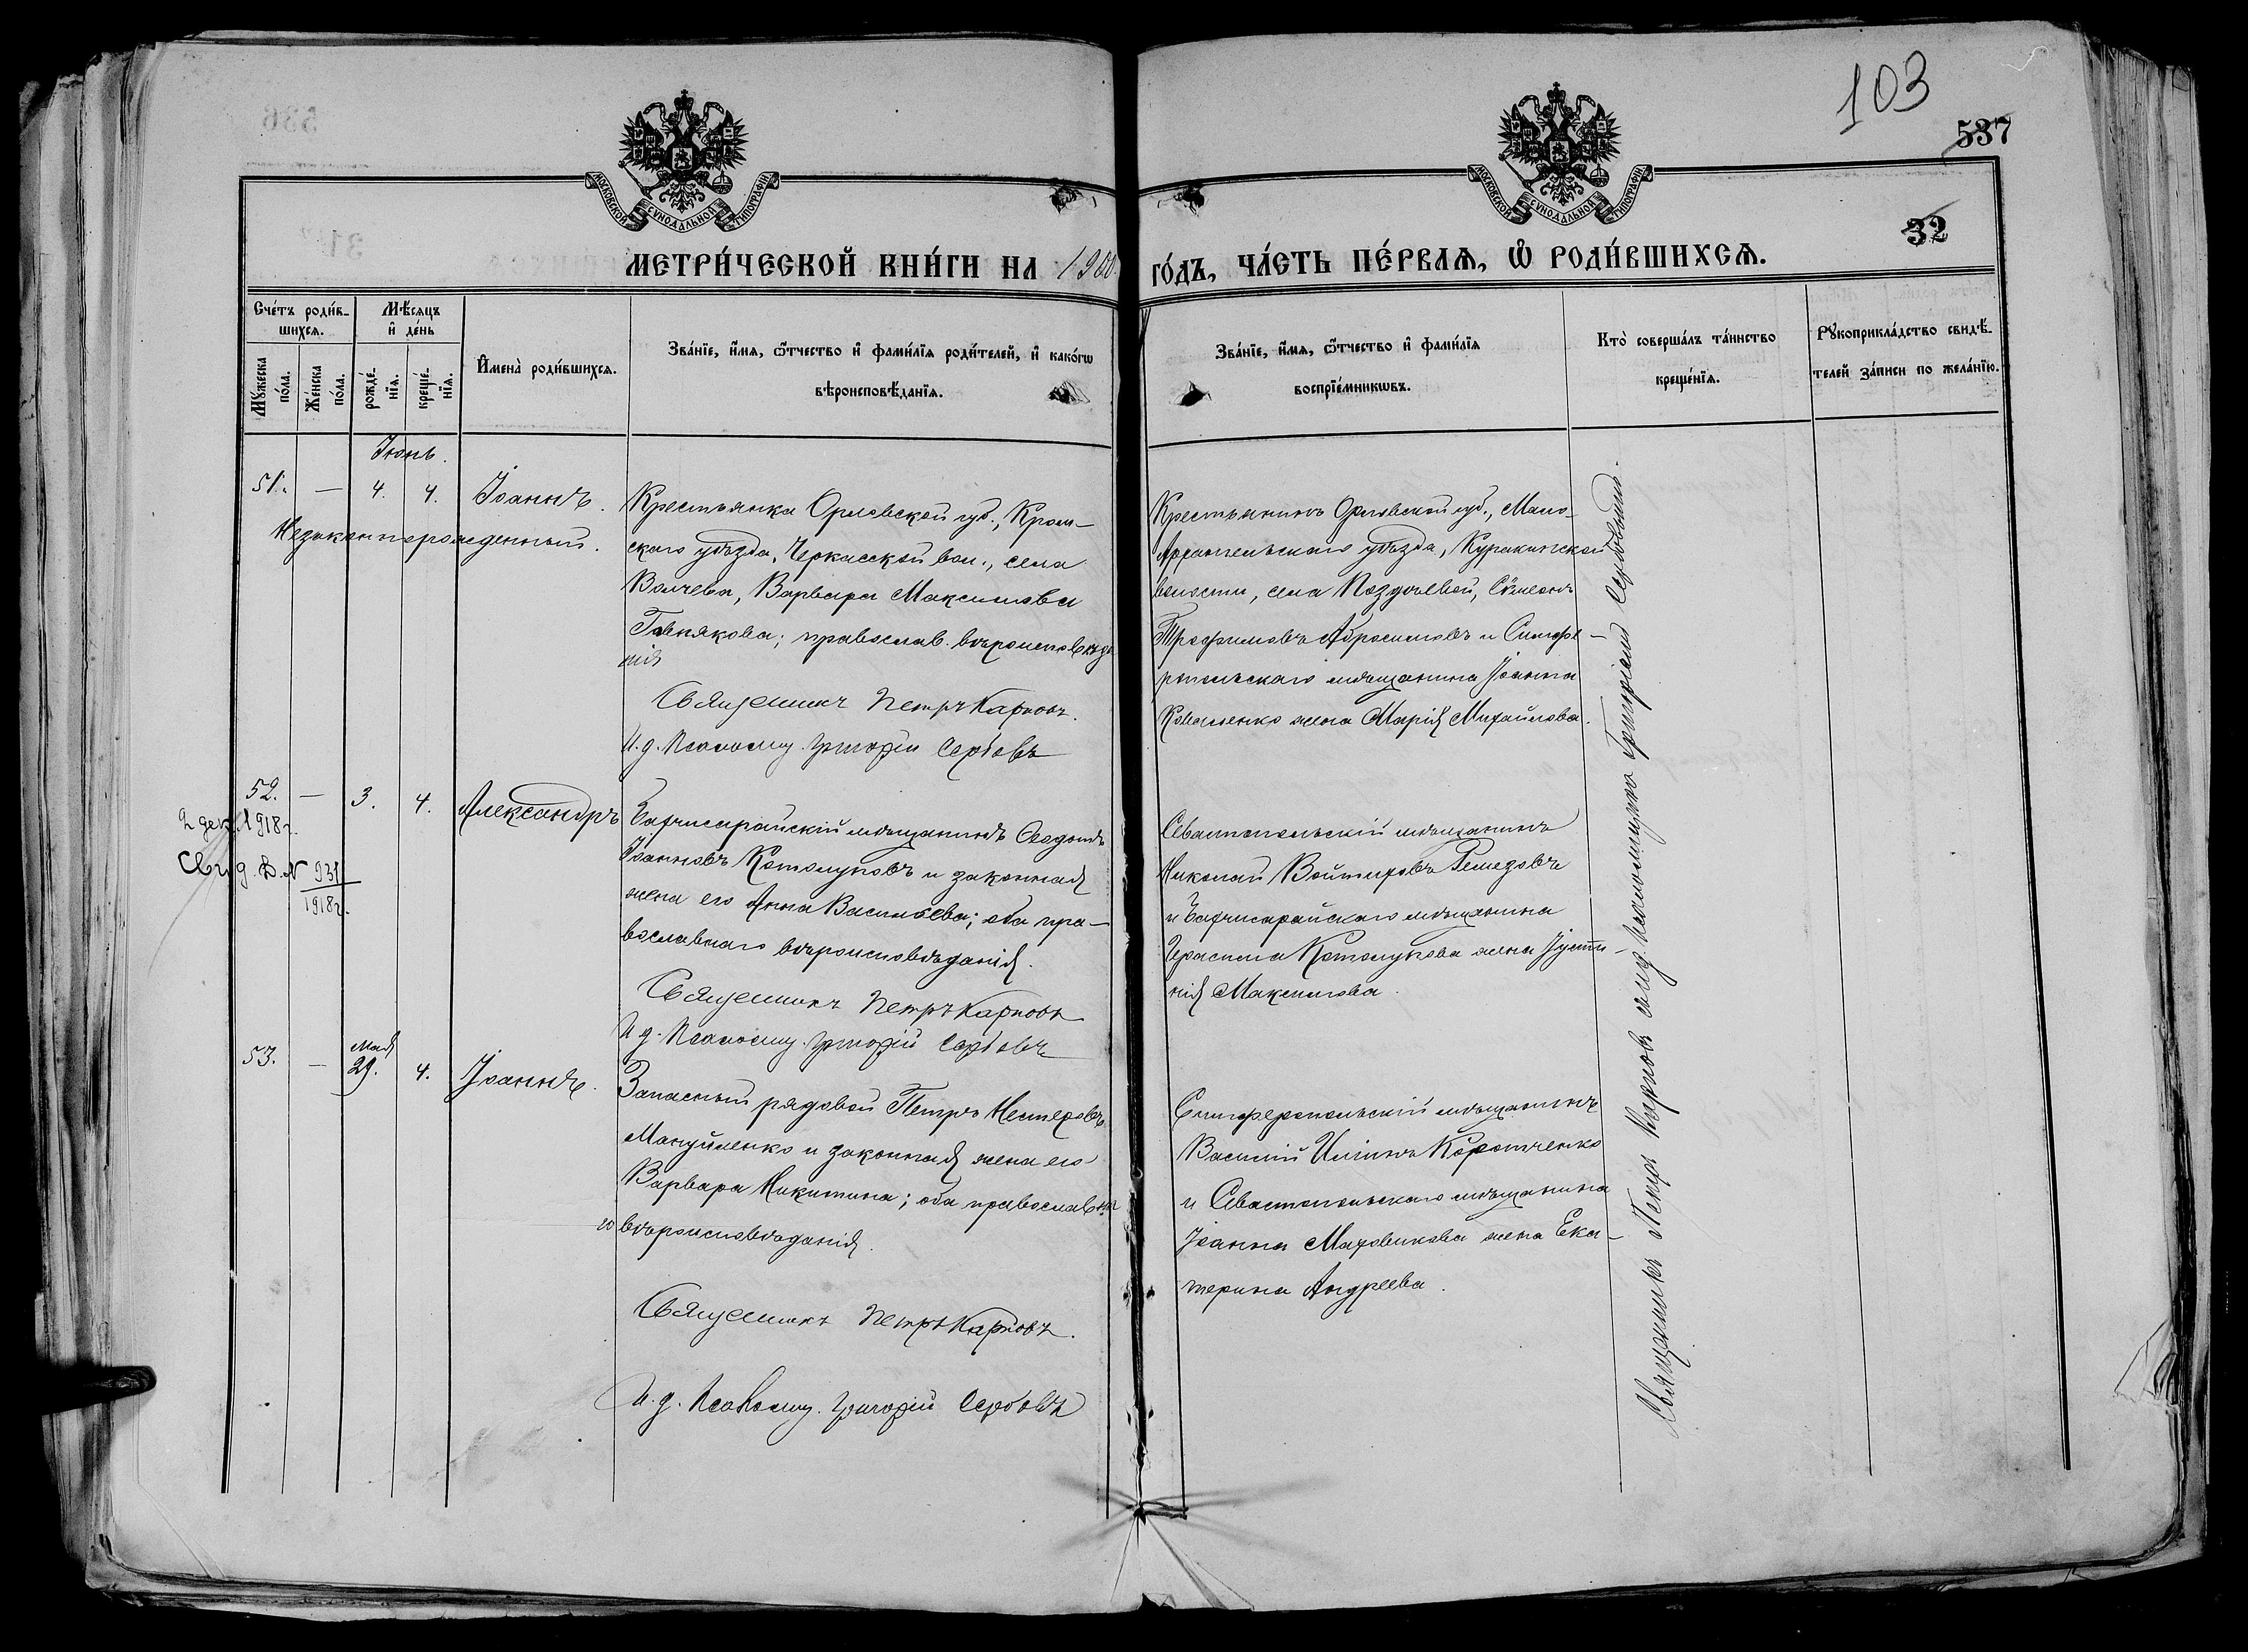 103
537
32
МОСКОВСКОЙ СѴНОДАЛЬНОЙ ТИПОГРАФІИ
МОСКОВСКОЙ СѴНОДАЛЬНОЙ ТИПОГРАФІИ
МЕТРИ́ЧЕСКОЙ КНИ́ГИ НА 1900
ГО́ДЪ, ЧА́СТЬ ПЕ́РВАѦ, Ѿ РОДИ́ВШИХСѦ.
Сче́тъ роди́в-
шихсѧ.
Мꙋ́жеска
по́ла.
Же́нска
по́ла.
Мѣ́сѧцъ
и҆ де́нь
рожде́-
нїѧ.
креще́-
нїѧ.
И҆мена̀ роди́вшихсѧ.
Зва́нїе, и҆́мѧ, ѻ҆́тчество и҆ фами́лїѧ роди́телей, и҆ како́гѡ
вѣроисповѣ́данїѧ.
Зва́нїе, и҆́мѧ, ѻ҆́тчество и҆ фами́лїѧ
воспрїе́мникѡвъ.
Кто̀ соверша́лъ та́инство
креще́нїѧ.
Рꙋкоприкла́дство свидѣ́-
телей за́писи по жела́нїю.
Іюнь.
51. — 4. 4. Іоаннъ.
Незаконнорожденный.
Крестьянка Орловской губ., Кром-
скаго уѣзда, Черкасской вол., села
Волчева, Варвара Максимова
Гавнякова; православ. вѣроисповѣда
нія
Священникъ Петръ Карповъ.
И. д. Псаломщ. Григорій Сербовъ
Крестьянинъ Орловской губ., Мало-
Архангельскаго уѣзда, Куракинской
волости, села Поздѣевой, Сѵмеонъ
Трофимовъ Абросимовъ и Симфе-
ропольскаго мѣщанина Іоанна
Коваленко жена Марія Михайлова.
52. — 3. 4. Александръ
2 дек. 1918 г.
Свид. В. N 931
1918 г.
Бахчисарайскій мѣщанинъ Ѳеодотъ
Іоанновъ Котолуповъ и законная
жена его Анна Васильева; оба пра-
вославнаго вѣроисповѣданія.
Священникъ Петръ Карповъ
И. д. Псаломщ. Григорій Сербовъ
Севастопольскій мѣщанинъ
Николай
и Бахчисарайскаго мѣщанина
Герасима Котолупова жена Іусти-
нія Максимова.
53. — Мая 29. 4. Іоаннъ.
Запасный рядовой Петръ Нестеровъ
Мануйленко и законная жена его
Варвара Никитина; оба православна
го вѣроисповѣданія.
Священникъ Петръ Карповъ.
И. д. Псаломщ. Григорій Сербовъ
Симферопольскій мѣщанинъ
Василій Ильинъ Коротченко
и Севастопольскаго мѣщанина
Іоанна Маховикова жена Ека-
терина Андреева.
Священникъ Петръ Карповъ съ и. д. псаломщика Григоріемъ Сербовымъ.